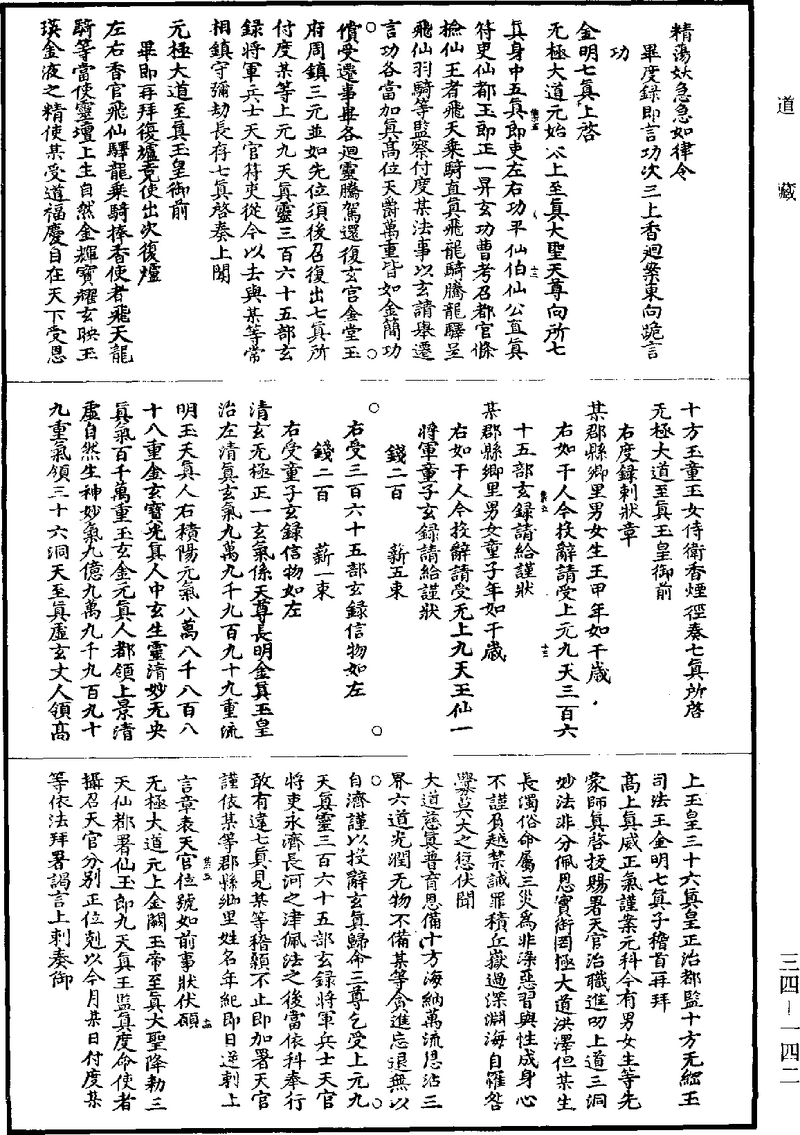 道藏
精蕩妖急急如律令
畢度錄即言功次三上香迴案東向跪言
功
金明七真上啓
无極大道元始太上至真大聖天尊向所七
真身中五真即吏左右功平仙伯仙公直真
符吏仙都王即正一昇玄功曹考召都官條
撿仙王者飛天乘騎直真飛龍騎騰龍驛呈
飛仙羽騎等監察付度某法事以玄請舉遷
言功各當加真高位天爵萬重皆如金簡功
償受遷事畢各迴靈騰駕還復玄宮金堂玉
府周鎮三元並如先位須後召復出七真所
付度某等上元九天真靈三百六十五部玄
錄將軍兵士天官符吏從今以去與某等常
相鎮守彌劫長存七真啓奏上聞
元極大道至真玉皇御前
畢即再拜復壚竟使出次復爐
左右香官飛仙驛龍乘騎捧香使者飛天龍
騎等當使靈壇上生自然金輝寶耀玄映玉
瑛金液之精使某受道福慶自在天下受恩
十方玉童玉女侍衛香煙徑奏七真所啓
无極大道至真玉皇御前
右度錄刺狀章
某郡縣鄉里男女生王甲年如干歲
右如干人今投辭請受上元九天三百六
十五部玄錄請給謹狀
某郡縣鄉里男女童子年如干歲
右如干人今投辭請受无上九天王仙一
將軍童子玄錄請給謹狀
錢二百 薪五束
右受三百六十五部玄錄信物如左
錢二百 薪一束
右受童子玄錄信物如左
清玄无極正一玄氣係天尊長明金真玉皇
治左清真玄氣九萬九千九百九十九重流
明玉天真人右積陽元氣八萬八千八百八
十八重金玄寶光真人中玄生靈清妙无央
真氣百千萬重玉玄金元真人都領上景清
虛自然生神妙氣九億九萬九千九百九十
九重氣領三十六洞天至真虛玄丈人領高
上玉皇三十六真皇正治都監十方无極玉
司法王金明七真子稽首再拜
高上真威正氣謹案元科今有男女生等先
蒙師真啓授賜署天官治職進叨上道三洞
妙法非分佩恩實銜罔極大道洪澤但某生
長濁俗命屬三災為非滲惡習與性成身心
不謹負越禁誡罪積丘嶽過深淵海自羅咎
舋莫大之愆伏聞
大道慈真普育思備十方海納萬流恩沾三
界六道光潤无物不備某等貪進忘退無以
自濟謹以投辭玄真歸命三尊乞受上元九
天真靈三百六十五部玄錄將軍兵士天官
將吏永濟長河之津佩法之後當依科奉行
敢有違七真見某等稽顙不止即加署天官
謹依某等郡縣鄉里姓名年紀即日逆刺上
言章表天官位號如前事狀伏願
无極大道元上金闕玉帝至真大聖降勑三
天仙都署仙王郎九天真王監真度命使者
攝召天官分別正位剋以今月某日付度某
等依法拜署謁言上刺奏御
三四—一四二